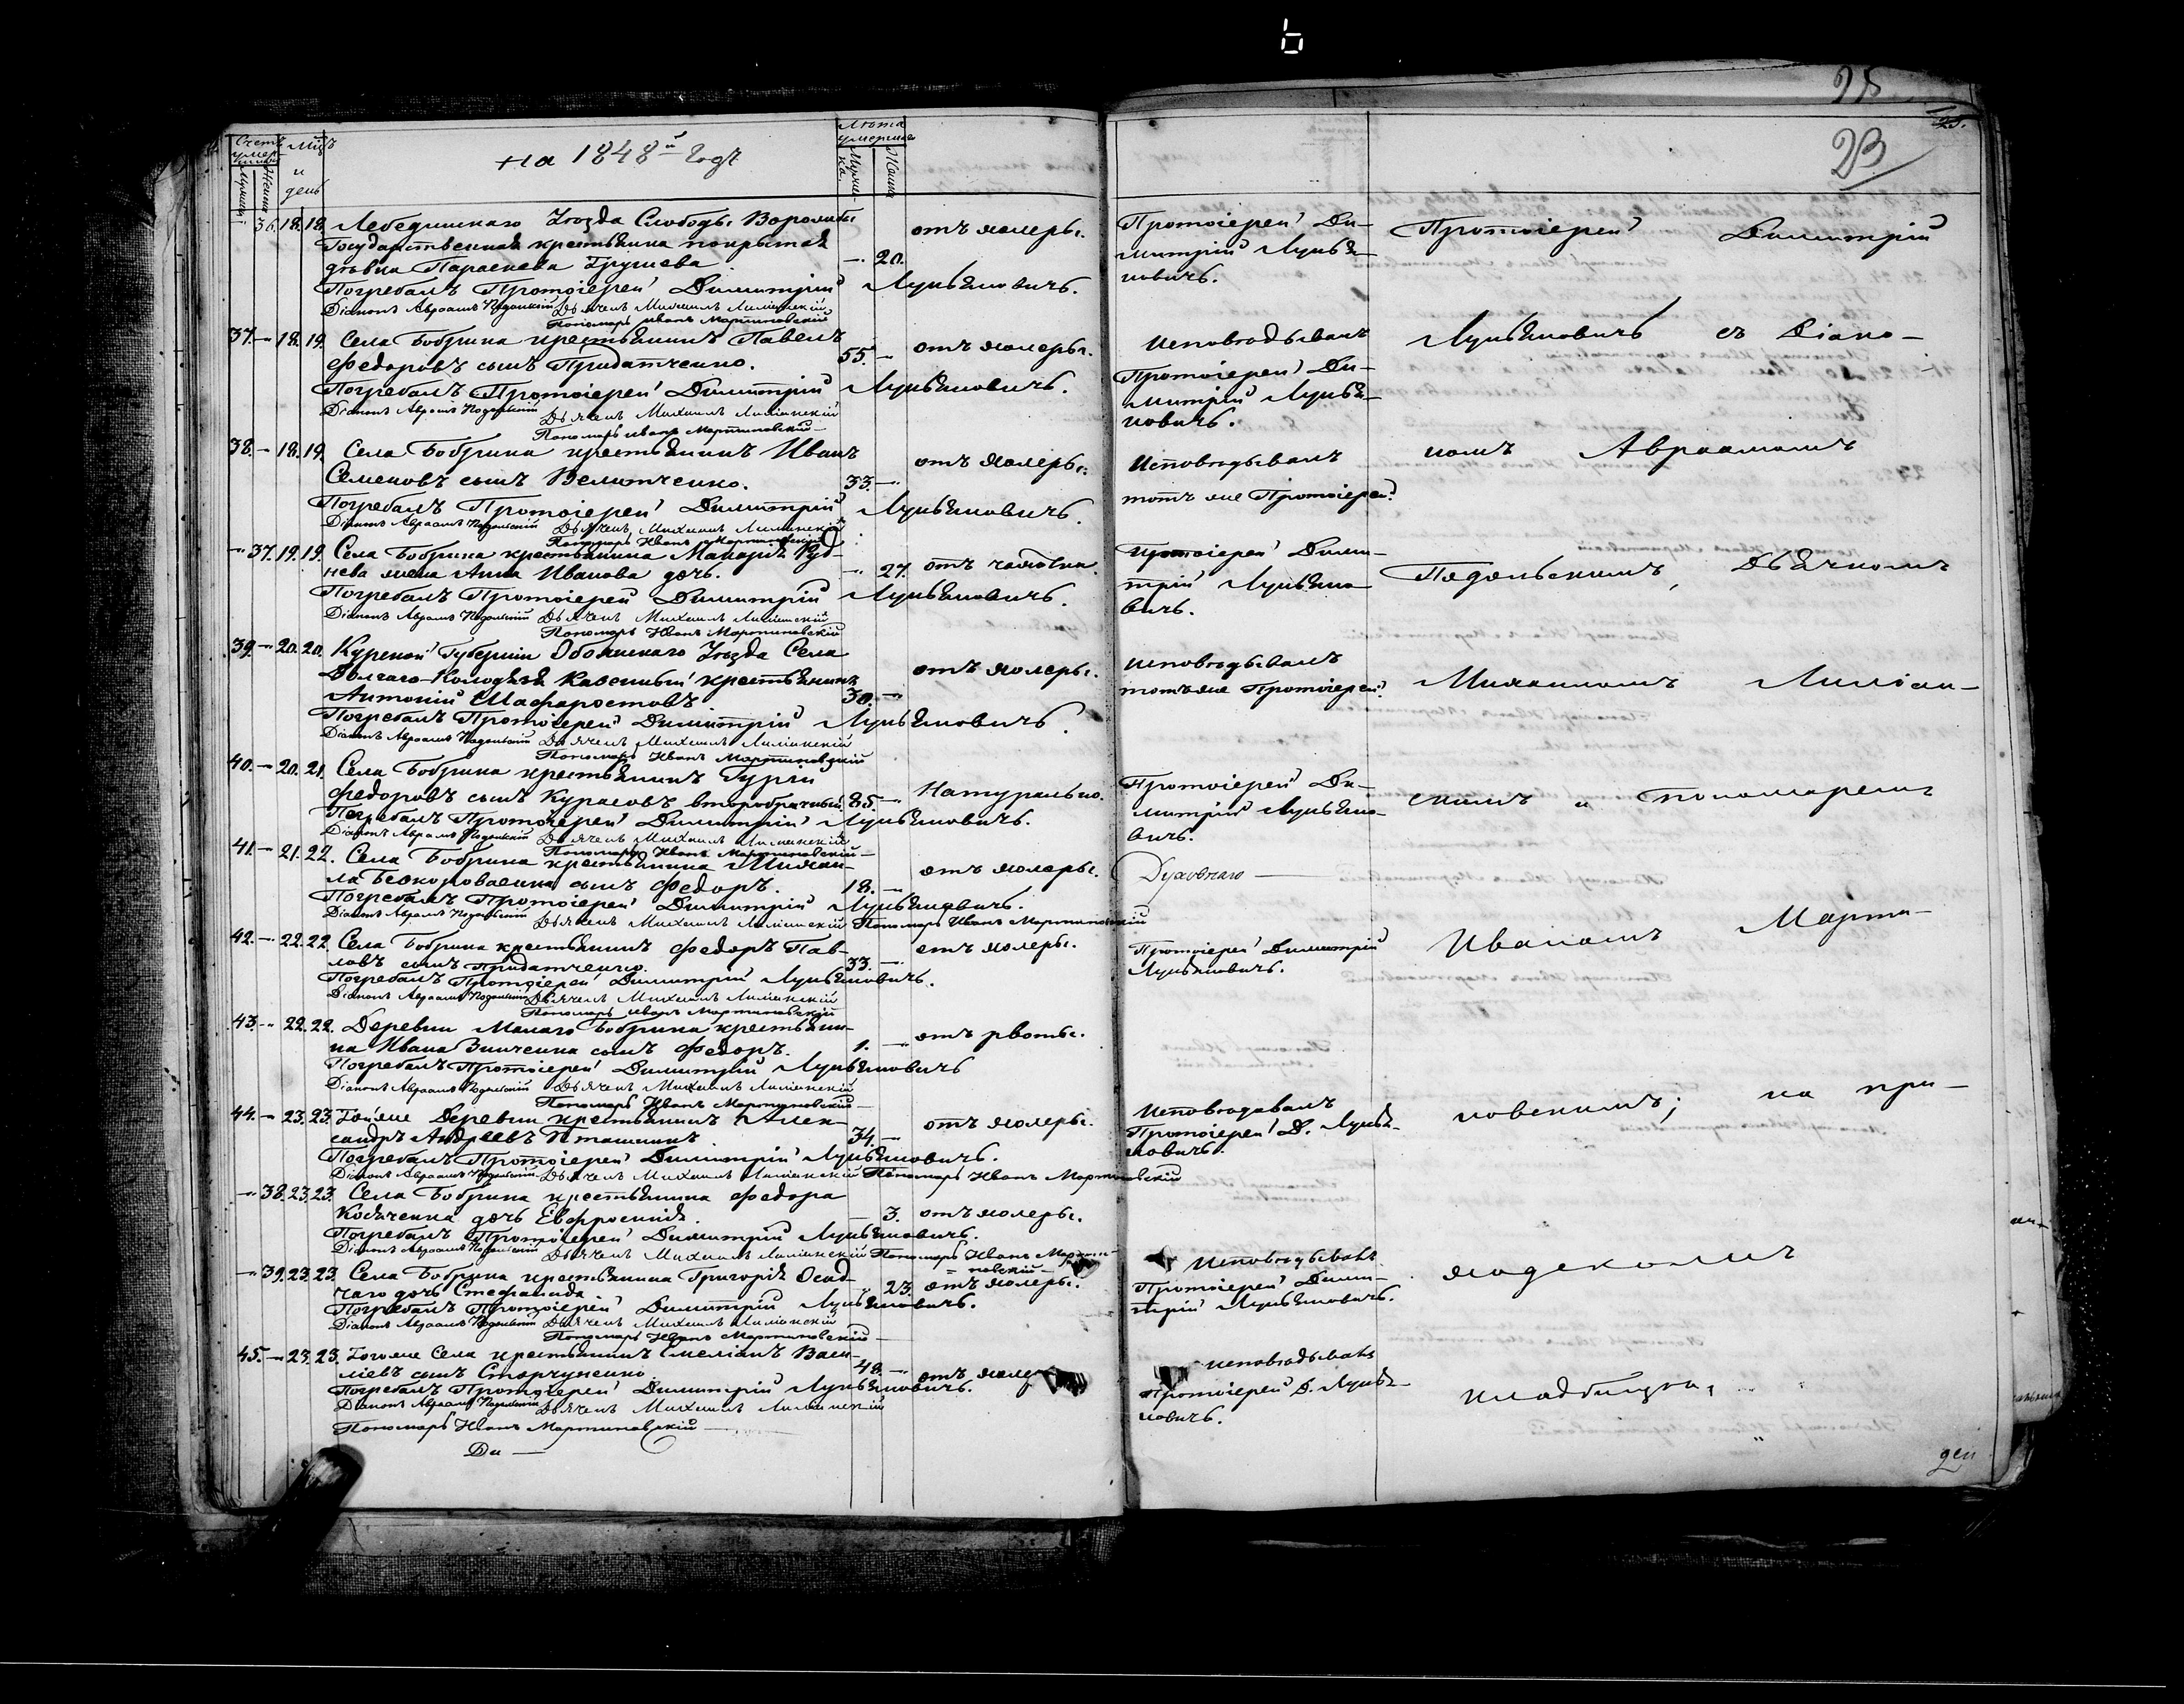 6
25
23
25.
Счетъ умер-
шихъ
Мцъ
и
день
на 1848й годъ
Лѣта
умершаго
Мужес-
ка.
Женс
36. 18. 18. Лебединскаго Уѣзда Слободы Ворожбы
Государственная крестьянка покрытая
дѣвка Параскева Грушева. — 20. отъ холеры. Протоіерей Ди-
митрій Лукья-
новичъ.
Погребалъ Протоіерей Димитрій Лукьяновичъ.
Діаконъ Авраамъ Подольскій Дьячекъ Михаилъ
Пономарь Иванъ Мартиновскій
37. — 18. 19. Села Бобрика крестьянинъ Павелъ
Федоровъ сынъ Придатченко. 55. — отъ холеры. Исповѣдывалъ
Протоіерей Ди-
митрій Лукья-
новичъ.
Погребалъ Протоіерей Димитрій Лукьяновичъ.
Діаконъ Авраамъ Подольскій Дьячекъ Михаилъ
Пономарь Иванъ Мартиновскій
38. — 18. 19. Села Бобрика крестьянинъ Иванъ
Семеновъ сынъ Велитченко. 33. — отъ холеры. Исповѣдывалъ
тотъ же Протоіерей.
Погребалъ Протоіерей Димитрій Лукьяновичъ.
Діаконъ Авраамъ Подольскій Дьячекъ Михаилъ
Пономарь Иванъ Мартиновскій
— 37. 19. 19. Села Бобрика крестьянина Макарія Руд-
нева жена Анна Иванова дочь. — 27. отъ чахотки. Протоіерей Дими-
трій Лукьяно-
вичъ.
Погребалъ Протоіерей Димитрій Лукьяновичъ.
Діаконъ Авраамъ Подольскій Дьячекъ Михаилъ
Пономарь Иванъ Мартиновскій
39. — 20. 20. Курской Губерніи Обоянскаго Уѣзда Села
Долгаго-Колодезя Казенный крестьянинъ
Антоній Шафоростовъ. 30. — отъ холеры. Исповѣдывалъ
тотъ же Протоіерей.
Погребалъ Протоіерей Димитрій Лукьяновичъ.
Діаконъ Авраамъ Подольскій Дьячекъ Михаилъ
Пономарь Иванъ Мартиновскій
40. — 20. 21. Села Бобрика крестьянинъ Гурій
Федоровъ сынъ Курасовъ второбрачный. 85. — Натурально. Протоіерей Ди-
митрій Лукьяно-
вичъ.
Погребалъ Протоіерей Димитрій Лукьяновичъ.
Діаконъ Авраамъ Подольскій Дьячекъ Михаилъ
Пономарь Иванъ Мартиновскій
41. — 21. 22. Села Бобрика крестьянина Михаи-
ла сынъ Федоръ. 18. — отъ холеры.
Погребалъ Протоіерей Димитрій Лукьяновичъ.
Діаконъ Авраамъ Подольскій Дьячекъ Михаилъ Пономарь Иванъ Мартиновскій
42. — 22. 22. Села Бобрика крестьянинъ Федоръ Пав-
ловъ сынъ Придатченко. 33. — отъ холеры. Протоіерей Димитрій
Лукьяновичъ.
Погребалъ Протоіерей Димитрій Лукьяновичъ.
Діаконъ Авраамъ Подольскій Дьячекъ Михаилъ
Пономарь Иванъ Мартиновскій
43. — 22. 22. Деревни Малаго Бобрика крестьяни-
на Ивана Зинченка сынъ Федоръ. 1. — отъ рвоты.
Погребалъ Протоіерей Димитрій Лукьяновичъ
Діаконъ Авраамъ Подольскій Дьячекъ Михаилъ
Пономарь Иванъ Мартиновскій
44. — 23. 23. Той же Деревни крестьянинъ Алек-
сандръ Андреевъ Пташникъ. 34. — отъ холеры. Исповѣдавалъ
Протоіерей Д. Лукья-
новичъ.
Погребалъ Протоіерей Димитрій Лукьяновичъ.
Діаконъ Авраамъ Подольскій Дьячекъ Михаилъ Пономарь Иванъ Мартиновскій
— 38. 23. 23. Села Бобрика крестьянина Федора
дочь Евфросинія. — 3. отъ холеры.
Погребалъ Протоіерей Димитрій Лукьяновичъ.
Діаконъ Авраамъ Подольскій Дьячекъ Михаилъ Пономарь Иванъ Марти-
новскій
— 39. 23. 23. Села Бобрика крестьянина Григорія Осад-
чаго дочь Стефанида 23. отъ холеры. Исповѣдывалъ
Протоіерей Дими-
трій Лукьяновичъ.
Погребалъ Протоіерей Димитрій Лукьяновичъ.
Діаконъ Авраамъ Подольскій Дьячекъ Михаилъ
Пономарь Иванъ Мартиновскій
45. — 23. 23. Тогоже Села крестьянинъ Емеліанъ Васи-
ліевъ сынъ 48. — отъ холе Исповѣдывалъ
Протоіерей Д. Лукья-
новичъ.
Погребалъ Протоіерей Димитрій Лукьяновичъ.
Діаконъ Авраамъ Подольскій Дьячекъ Михаилъ
Пономарь Иванъ Мартиновскій
Ди —
Протоіерей Димитрій
Лукьяновичъ съ Діако-
номъ Авраамомъ
Подольскимъ, Дьячкомъ
Михаиломъ
скимъ и Пономаремъ
Иваномъ Марти-
новскимъ; на при-
ходскомъ
кладбищѣ.